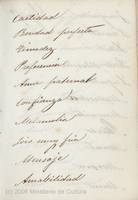 Castidad
Bondad perfecta
Timidez
Preferencia
Amor paternal
Confianza
Melancolia
Sois muy fria
Mensaje
Amabilidad
(c) 2006 Ministerio de Cultura